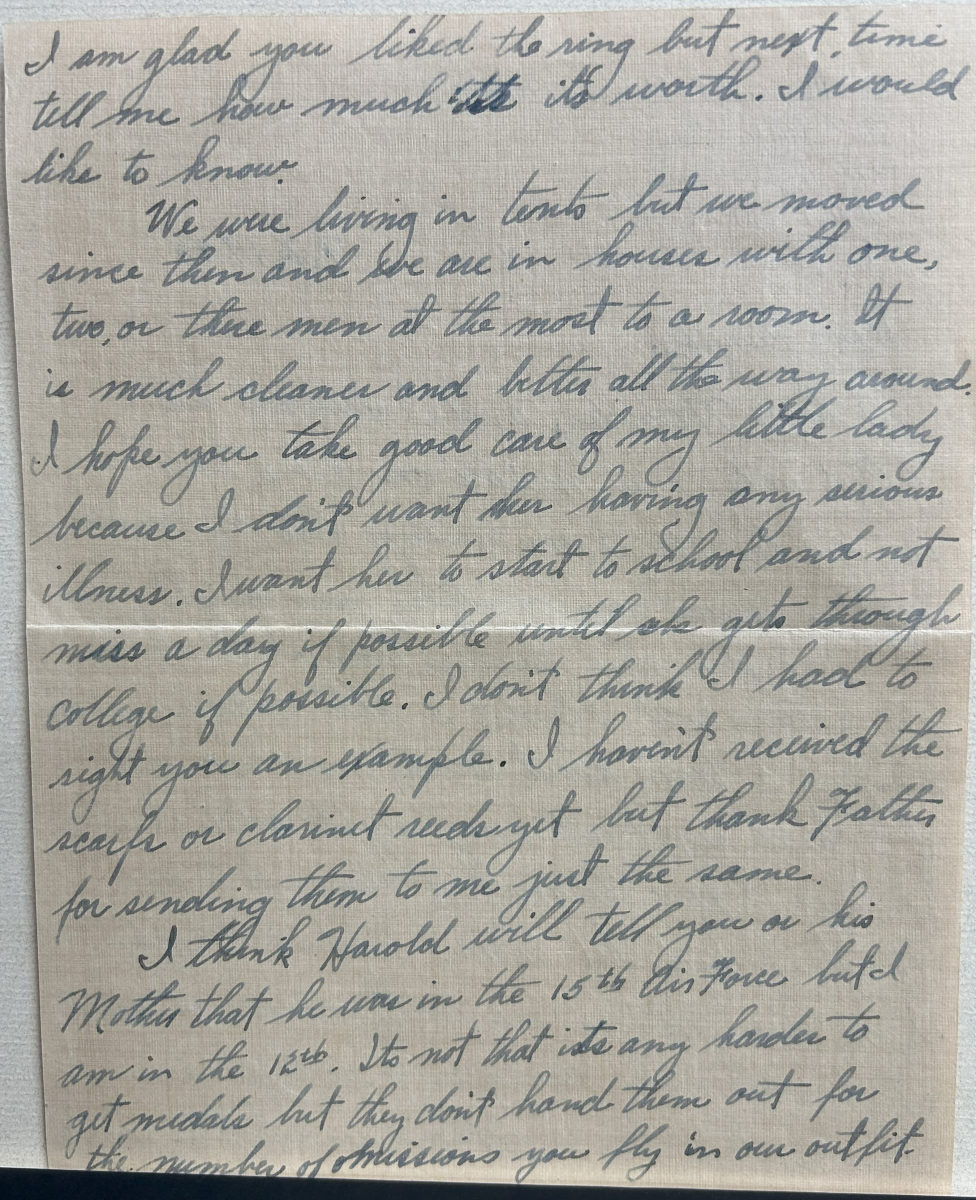 I am glad you liked the ring but next, time
tell me how much its worth. I would
like to know.
We were living in tents but we moved
since then and we are in houses with one,
two, or three men at the most to a room. It
is much cleaner and better all the way around.
I hope you take good care of my little lady
because I don't want her having any serious
illness. I want her to start to school and not
miss a day if possible until she gets through
college if possible. I don't think I had to
right you an example. I haven't received the
scarfs or clarinet reeds yet but thank Father
for sending them to me just the same.
I think Harold will tell you or his
Mother that he was in the 15th Air Force but I
am in the 12th. Its not that its any harder to
get medals but they don't hand them out for
the number of missions you fly in our outfit.